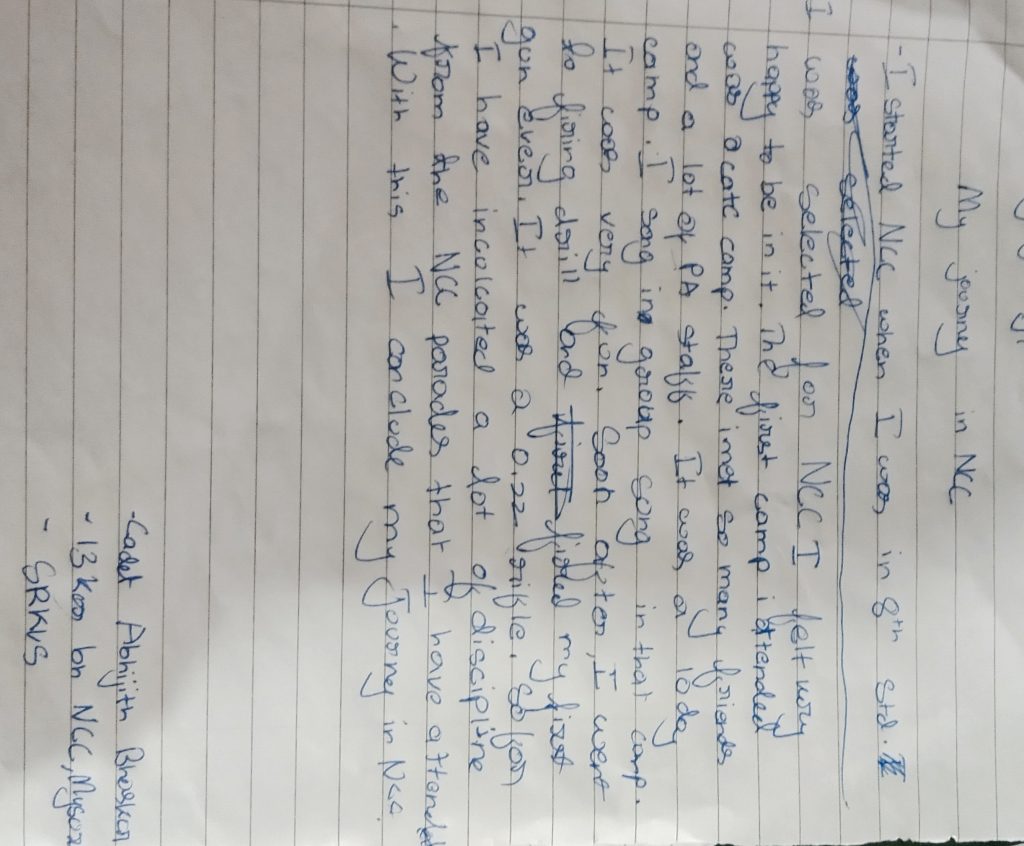 My journey in NCC
- I started NCC when I was in 8th std.
was selected
I was selected for NCC I felt very
happy to be in it. The first camp i attended
was a catc camp. There i met so many friends
and a lot of PA staff. It was a 10 day
camp. I sang in group song in that camp.
It was very fun. Soon after, I went
to firing drill and first fired my first
gun ever. It was a 0.22 rifle. So far
I have incolcated a lot of discipline
from the NCC parades that I have attended
. With this I conclude my Journey in NCC.
- Cadet Abhijith Bhaskar
- 13 Kar bn NCC, Mysore
- SRKVS